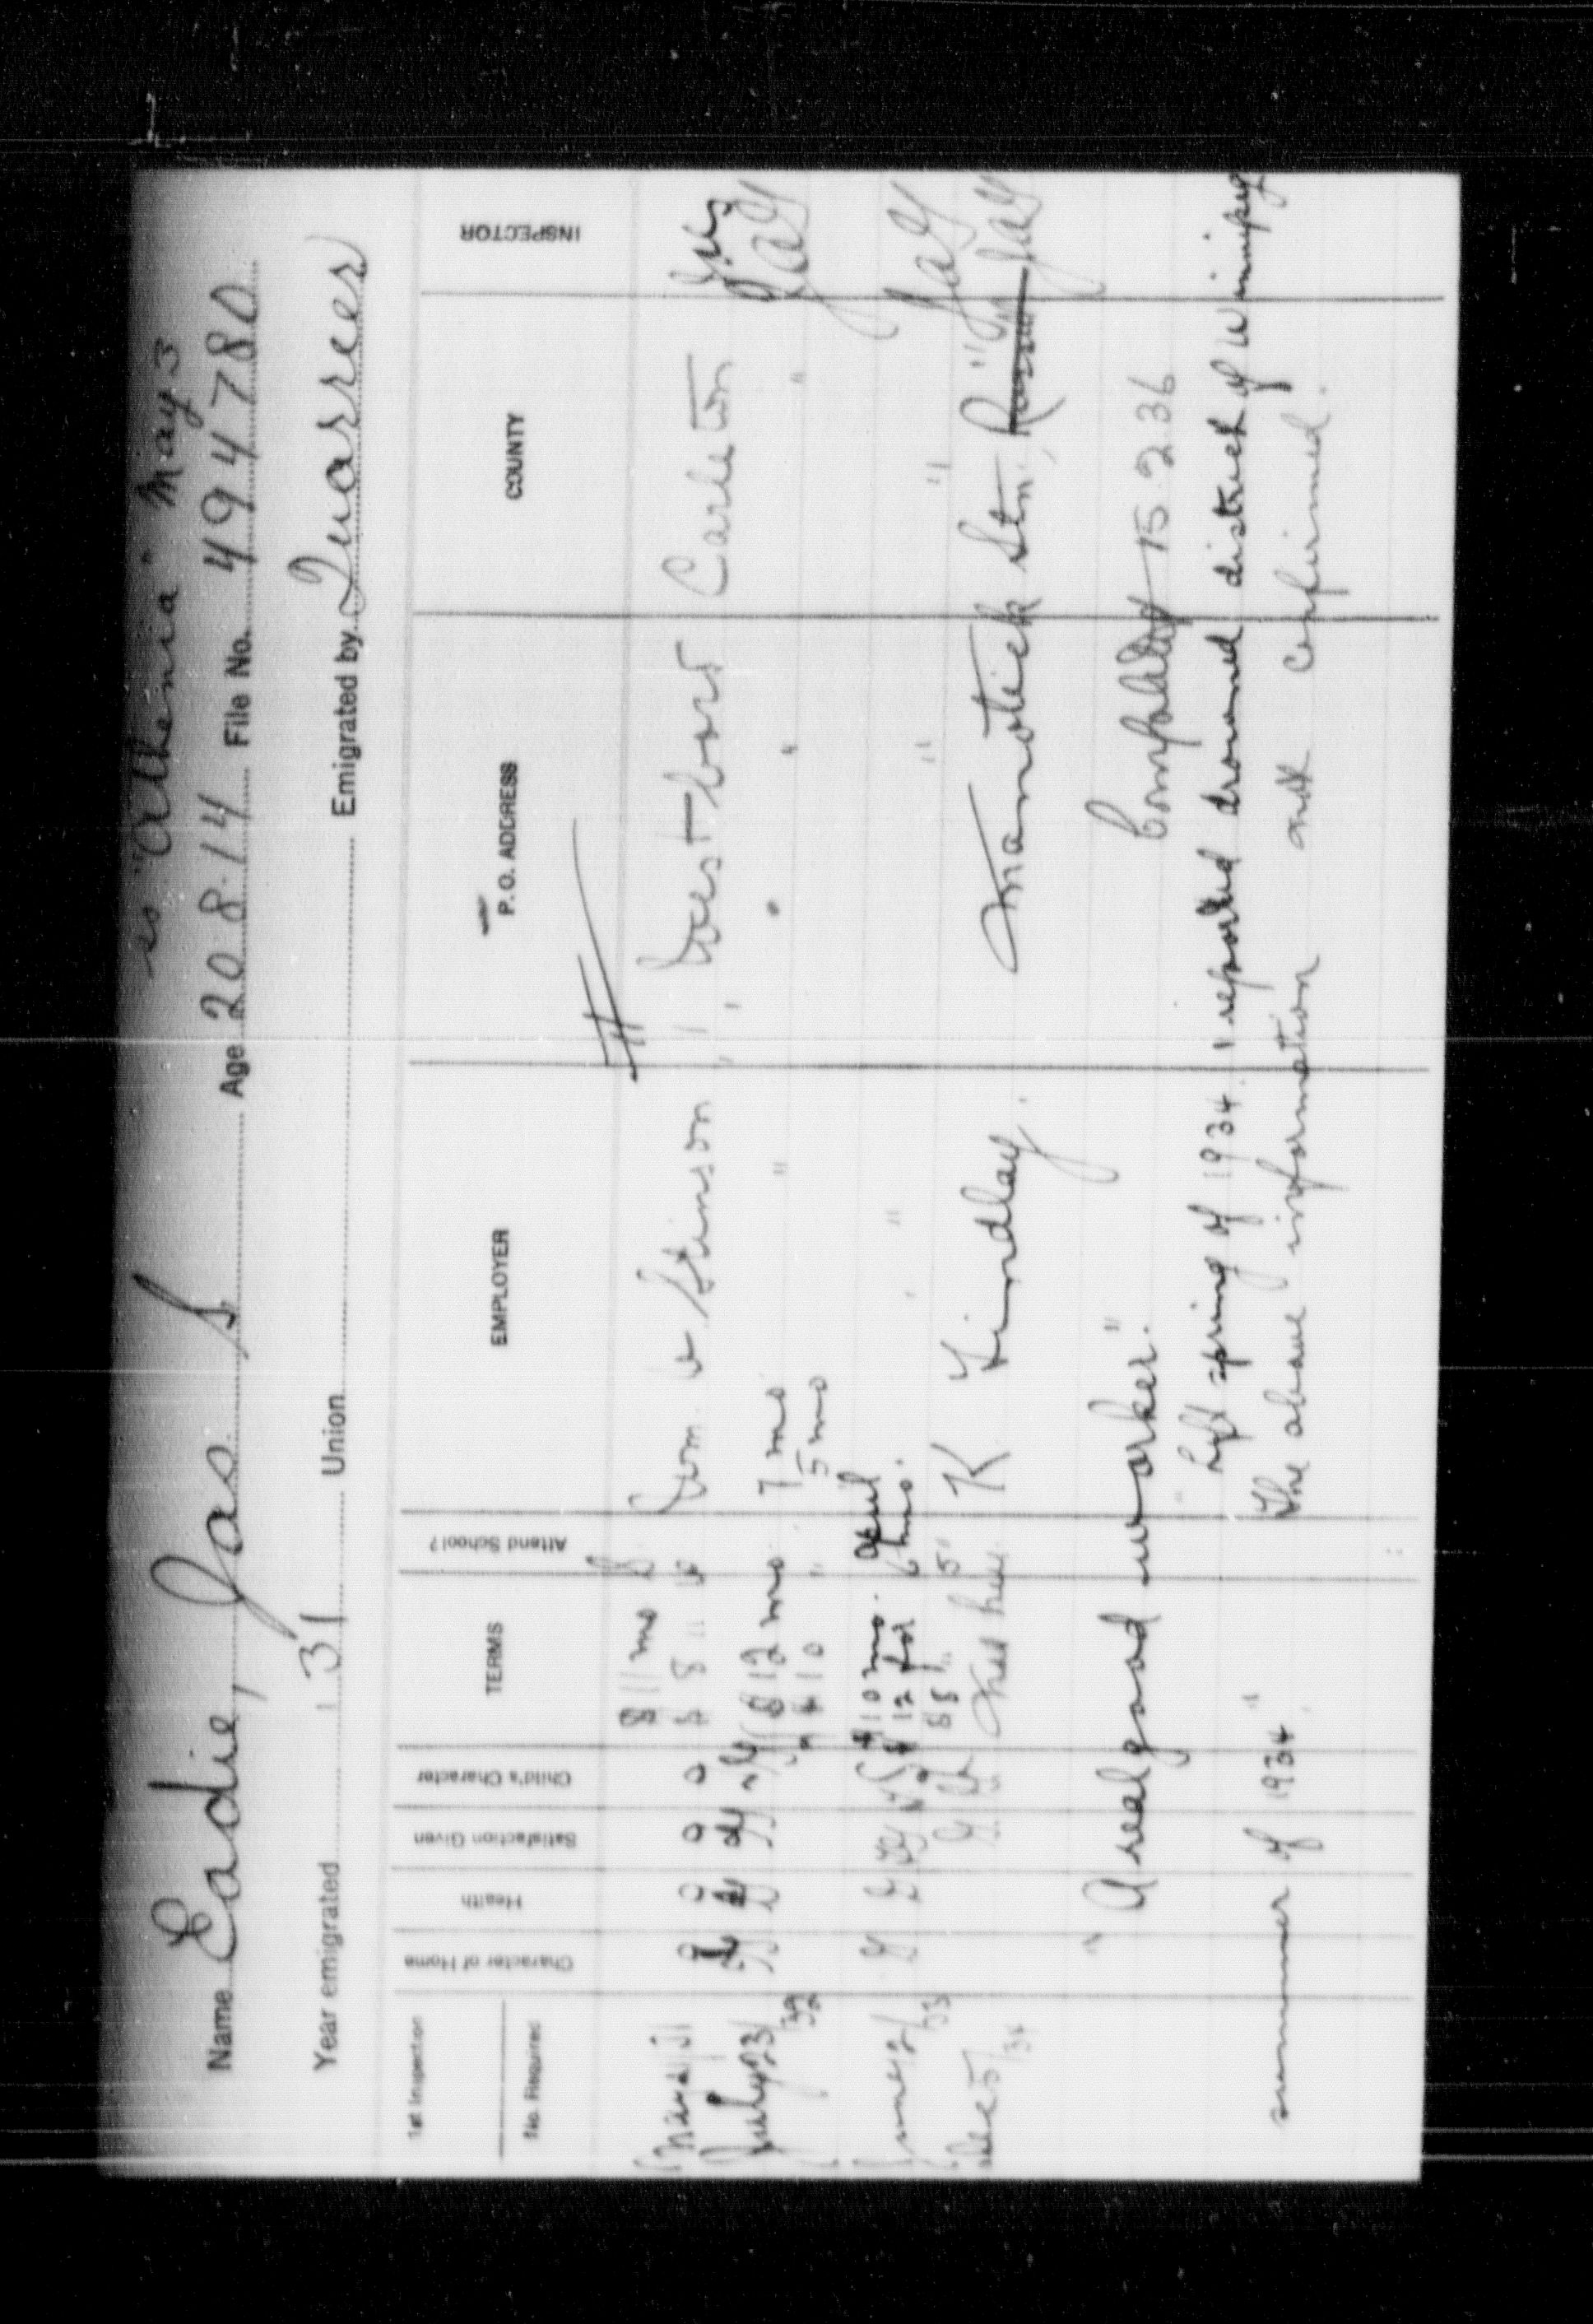 ss "Athenia" May 3
Name Eadie, Jas S Age 20.8.14 File No. 494780
Year emigrated 31 Union Emigrated by Quarrier
1st Inspection
No. Required
Character of Home
Health
Satisfaction Given
Child's Character
TERMS
Attend School?
EMPLOYER
P. O. ADDRESS
COUNTY
INSPECTOR
8 11 mo
8 " Wm W Stinson Westboro Carleton
July 23/32 G G G 12 mo 7 mo " " "
10 " 5 mo
June 2/33 G G 10 mo. April " " "
12 for 6 mo.
Dec 5/34 G K Lindlay. Manotick Stn.
"A real good worker."
Completed 15.2.36
Left spring of 1934. reported drowned district of Winnipeg
summer of 1934" The above information not confirmed.